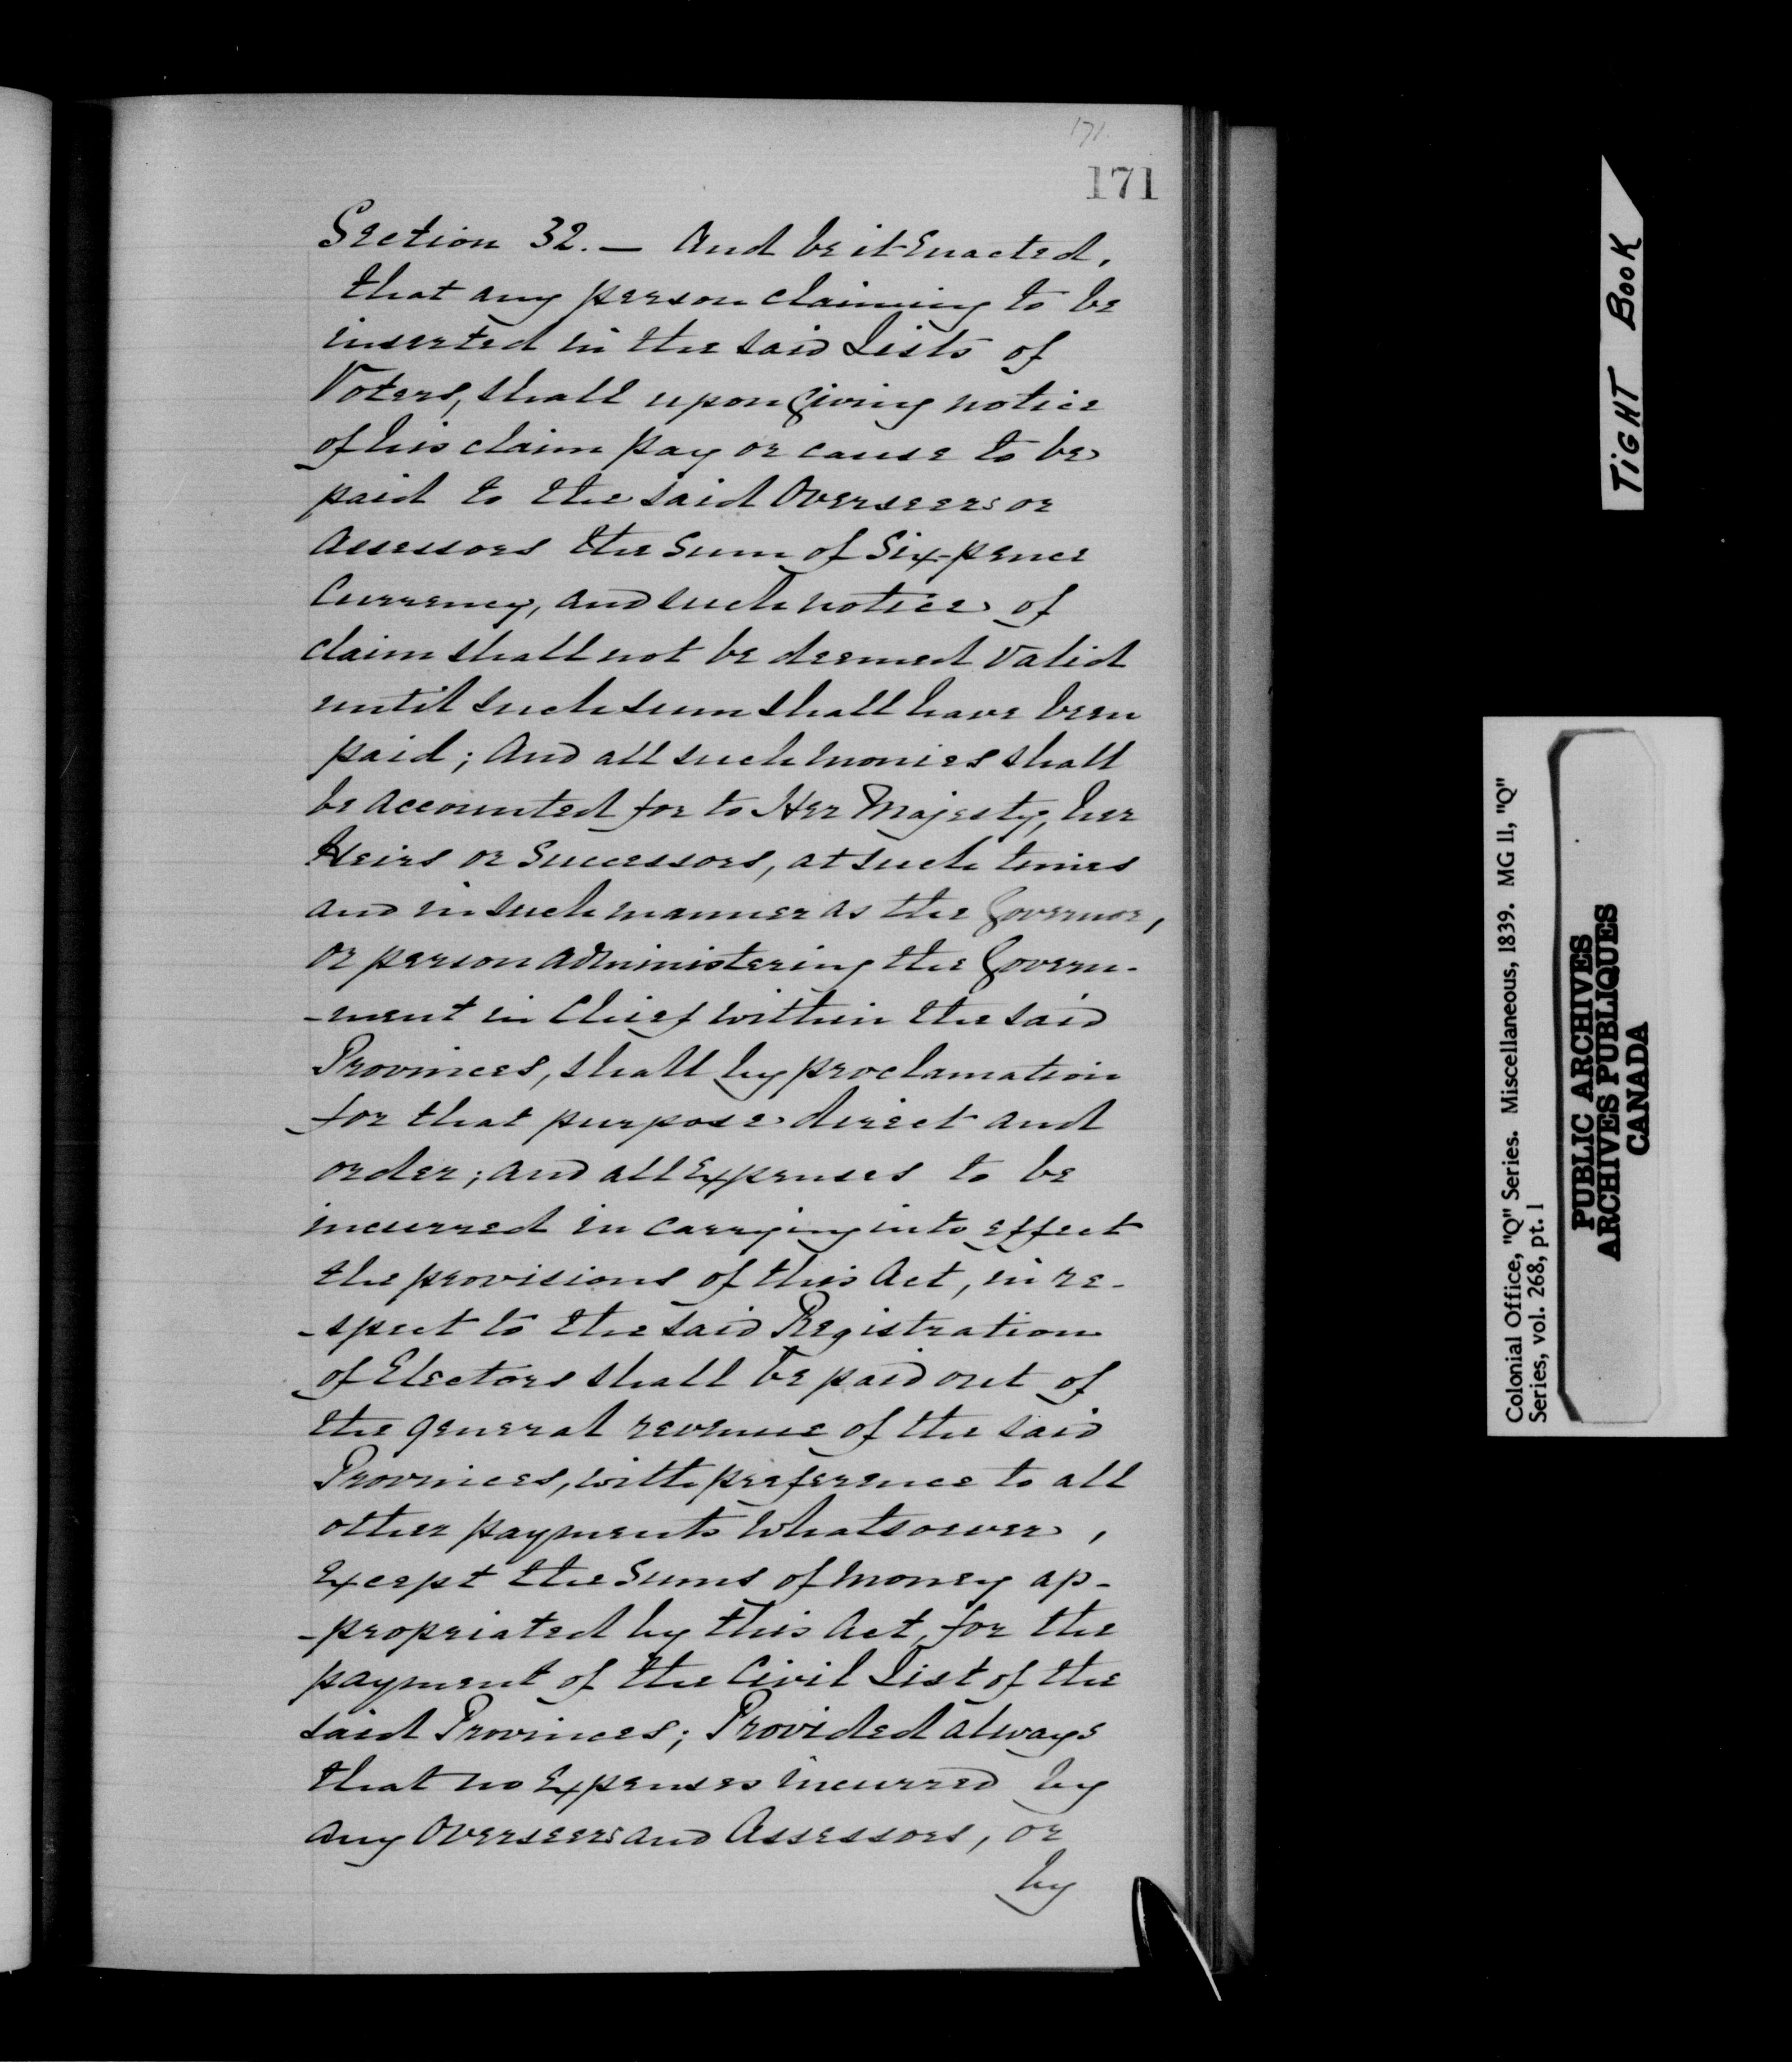 171.
171
Section 32. — And be it Enacted,
that any person claiming to be
inserted in the said Lists of
Voters, shall upon Giving notice
of his claim pay or cause to be
paid to the said Overseers or
Assessors the Sum of Six-pence
Currency, and such notice of
claim shall not be deemed valid
until such sum shall have been
paid; And all such monies shall
be accounted for to Her Majesty, her
Heirs or Successors, at such times
and in such manner as the Governor,
or person administering the Govern-
-ment in Chief within the said
Provinces, shall by proclamation
for that purpose direct and
order; and all Expenses to be
incurred in carrying into effect
the provisions of this Act, in re-
-spect to the said Registration
of Electors shall be paid out of
the general revenue of the said
Provinces, with preference to all
other payments whatsoever,
Except the Sums of money ap-
-propriated by this Act, for the
payment of the Civil List of the
said Provinces; Provided always
that no Expenses incurred by
any Overseers and Assessors, or
by
TIGHT BOOK
Colonial Office, "Q" Series. Miscellaneous, 1839. MG 11, "Q"
Series, vol. 268, pt. 1
PUBLIC ARCHIVES
ARCHIVES PUBLIQUES
CANADA